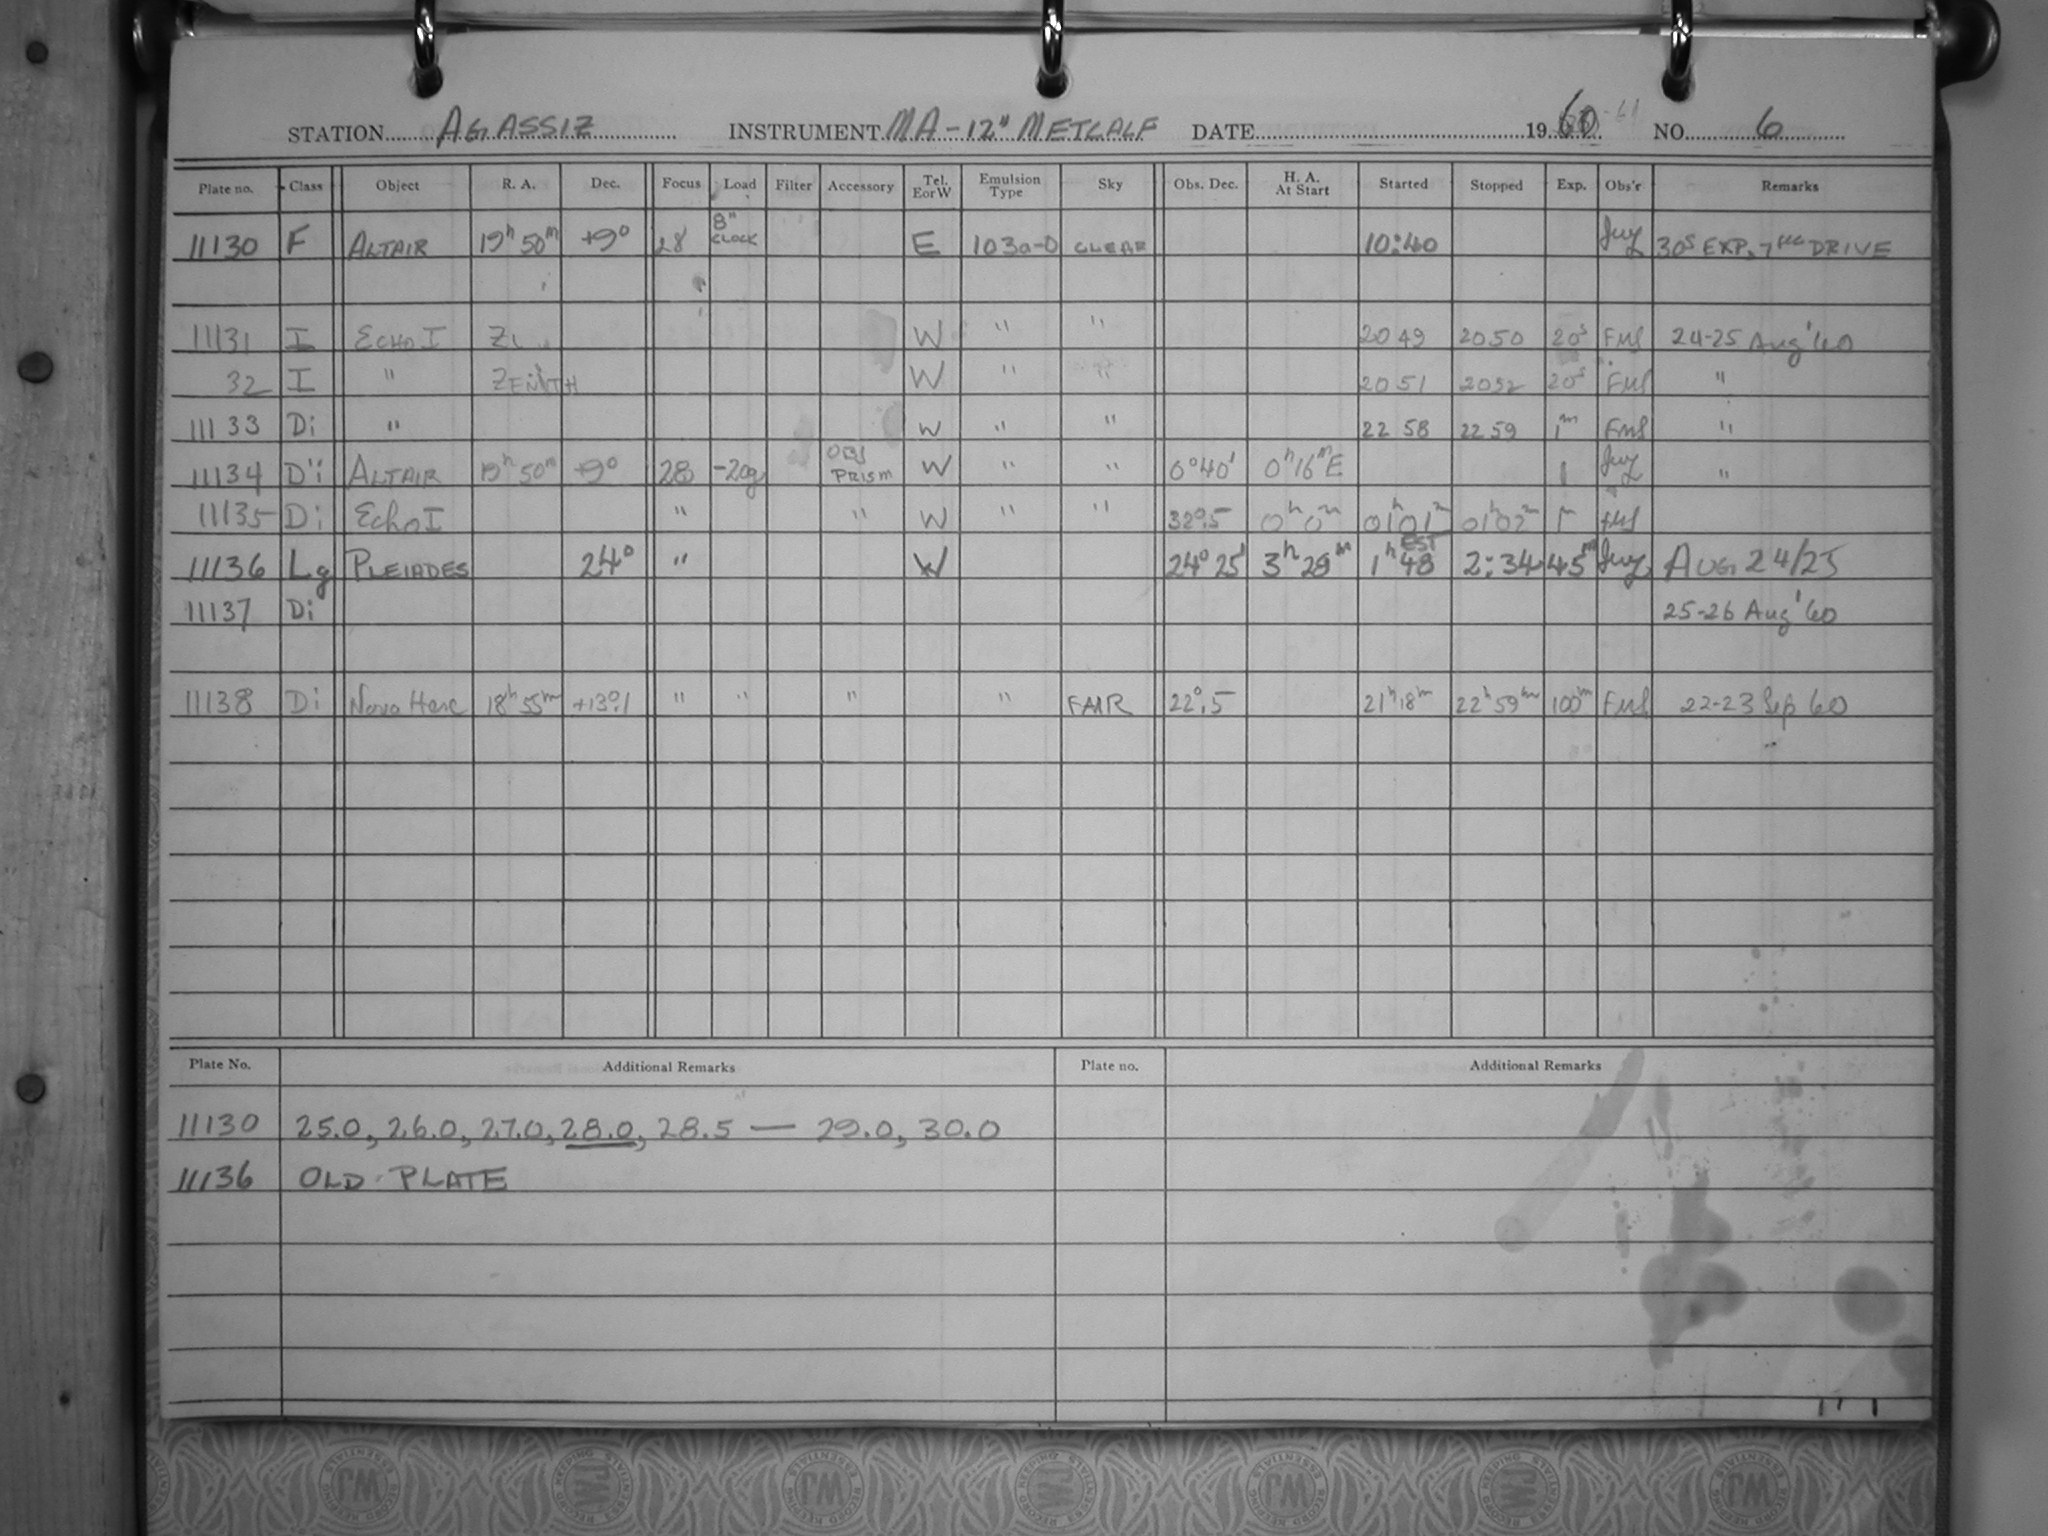 STATION AGASSIZ INSTRUMENT MA-12" METCALF DATE 1960-61 NO. 6
Plate no. Class Object R. A. Dec. Focus Load Filter Accessory Tel. E or W Emulsion Type Sky Obs. Dec. H. A. At Start Started Stopped Exp. Obs'r Remarks
11130 F ALTAIR 19h 50m +9° 28 8" CLOCK E 103a-O CLEAR 10:40 30s EXP. DRIVE
11131 I ECHO I W " " 20 49 20 50 20s 24-25 Aug '60
32 I " ZENITH W " " 20 51 20 52 20s "
11133 Di " W " " 22 58 22 59 1m "
11134 Di ALTAIR 19h 50m +9° 28 -20g OBJ PRISM W " " 0°40' 0h16mE 1 "
11135 Di Echo I " " W " " 32°.5 0h 0m 01h01m 01h02m 1m
11136 Lg PLEIADES 24° " W 24° 25' 3h 29m 1h 48 EST 2:34 45m AUG 24/25
11137 Di 25-26 Aug '60
11138 Di Nova Herc 18h 55m +13°.1 " " " " FAIR 22°.5 21h18m 22h59m 100m 22-23 Sep 60
Plate No. Additional Remarks Plate no. Additional Remarks
11130 25.0, 26.0, 27.0, 28.0, 28.5 — 29.0, 30.0
11136 OLD PLATE